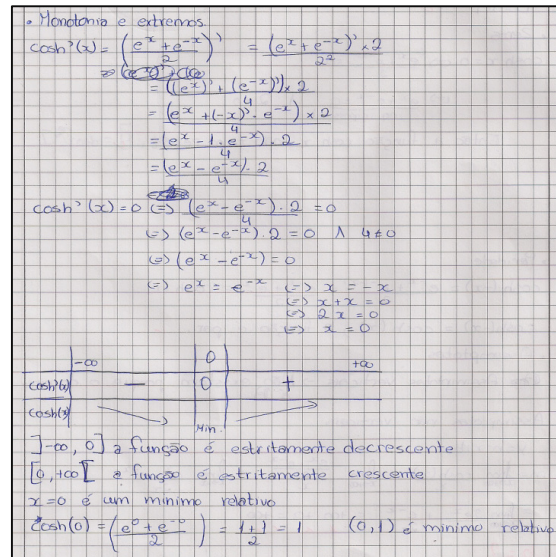 • Monotonia e extremos
cosh'(x) = ((e^x + e^-x)/2)' = ((e^x + e^-x)' × 2)/2²
= (((e^x)' + (e^-x)') × 2)/4
= ((e^x + (-x)' · e^-x) × 2)/4
= ((e^x - 1 · e^-x) · 2)/4
= ((e^x - e^-x) · 2)/4
cosh'(x) = 0 (=) ((e^x - e^-x) · 2)/4 = 0
(=) (e^x - e^-x) · 2 = 0 ∧ 4 ≠ 0
(=) (e^x - e^-x) = 0
(=) e^x = e^-x (=) x = -x
(=) x + x = 0
(=) 2x = 0
(=) x = 0
-∞ 0 +∞
cosh'(x) — 0 +
cosh(x) ↘ Min. ↗
]-∞, 0] a função é estritamente decrescente
[0, +∞[ a função é estritamente crescente
x=0 é um minimo relativo
cosh(0) = ((e^0 + e^-0)/2) = (1+1)/2 = 1 (0,1) é minimo relativo